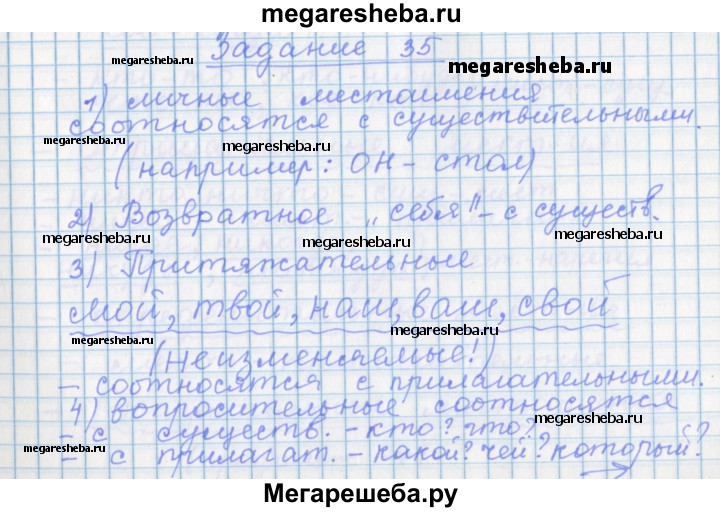 megaresheba.ru
Задание 35
megaresheba.ru
megaresheba.ru
1) личные местоимения
соотносятся с существительными.
megaresheba.ru
megaresheba.ru
(например: ОН - стол)
megaresheba.ru
2) Возвратное „себя" - с существ.
megaresheba.ru
megaresheba.ru
megaresheba.ru
3) Притяжательные
мой, твой, наш, ваш, свой
megaresheba.ru
megaresheba.ru
(неизменяемые!)
- соотносятся с прилагательными.
megaresheba.ru
4) вопросительные соотносятся
megaresheba.ru
- с существ. - кто? что?
megaresheba.ru
megaresheba.ru
- с прилагат. - какой? чей? который?
Мегарешеба.ру